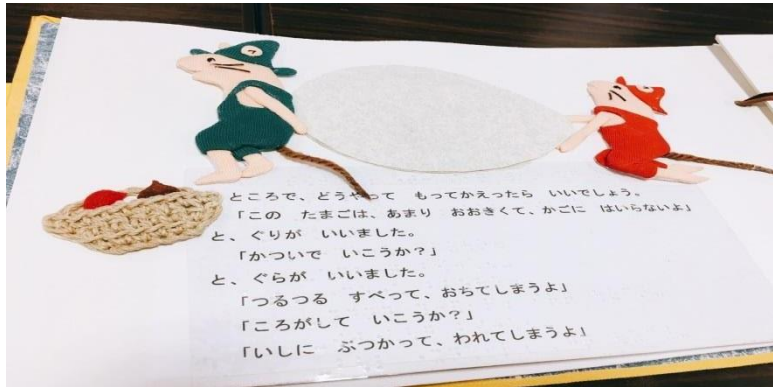 ところで、どうやって　もってかえったら　いいでしょう。
「この　たまごは、あまり　おおきくて、かごに　はいらないよ」
と、ぐりが　いいました。
「かついで　いこうか？」
と、ぐらが　いいました。
「つるつる　すべって、おちてしまうよ」
「ころがして　いこうか？」
「いしに　ぶつかって、われてしまうよ」